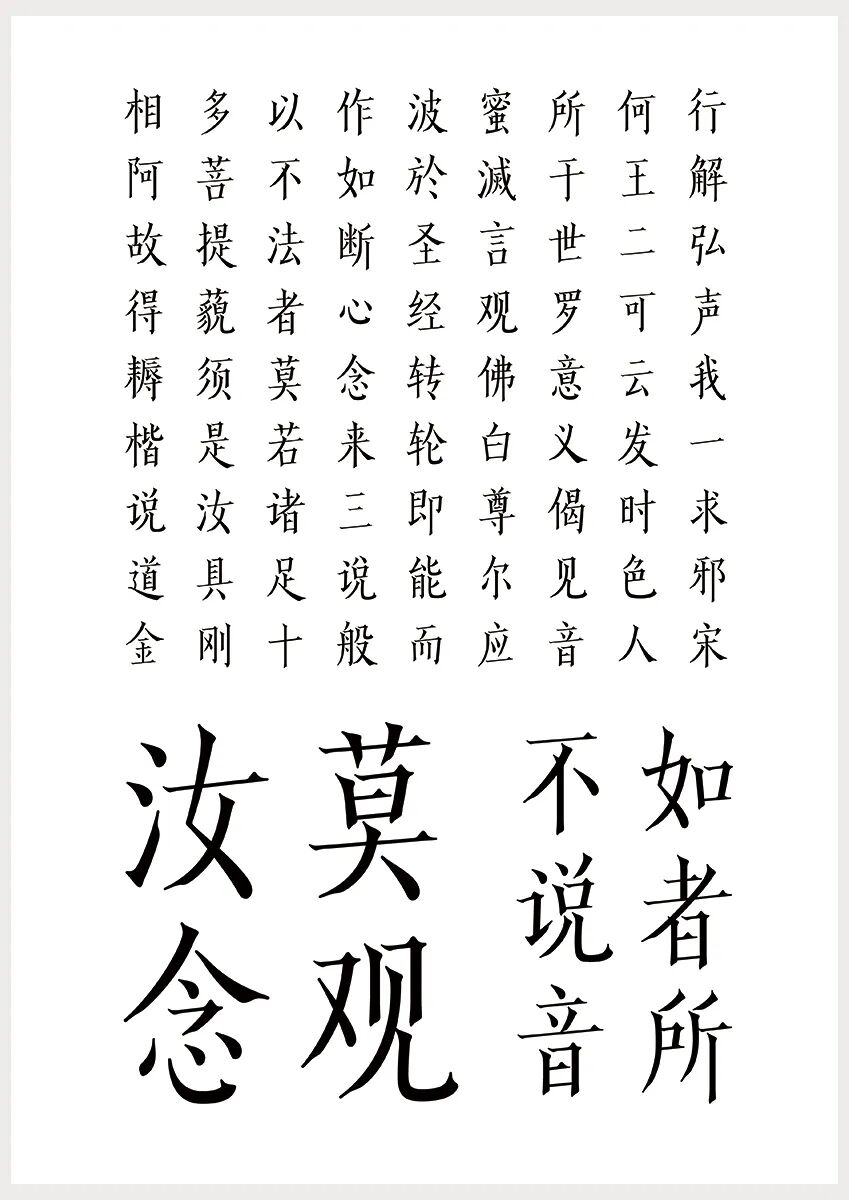 相多以作波蜜所何行
阿菩不如於滅于王解
故提法断圣言世二弘
得藐者心经观罗可声
耨须莫念转佛意云我
楷是若来轮白义发一
说汝诸三即尊偈时求
道具足说能尔见色邪
金刚十般而应音人宋
汝莫
念观
不如
说者
音所